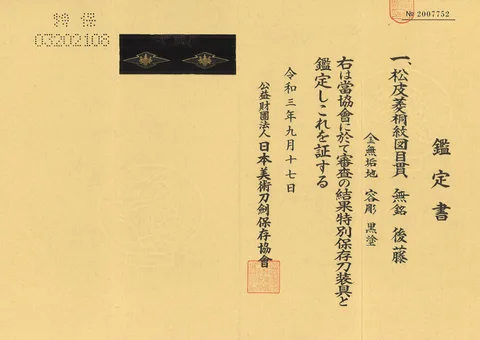 鑑定書
一、松皮菱桐紋図目貫 無銘 後藤
金無垢地 容彫 黒塗
右は當協會に於て審査の結果特別保存刀装具と
鑑定しこれを証する
令和三年九月十七日
公益財團法人 日本美術刀劍保存協會
特保
03202108
№2007752